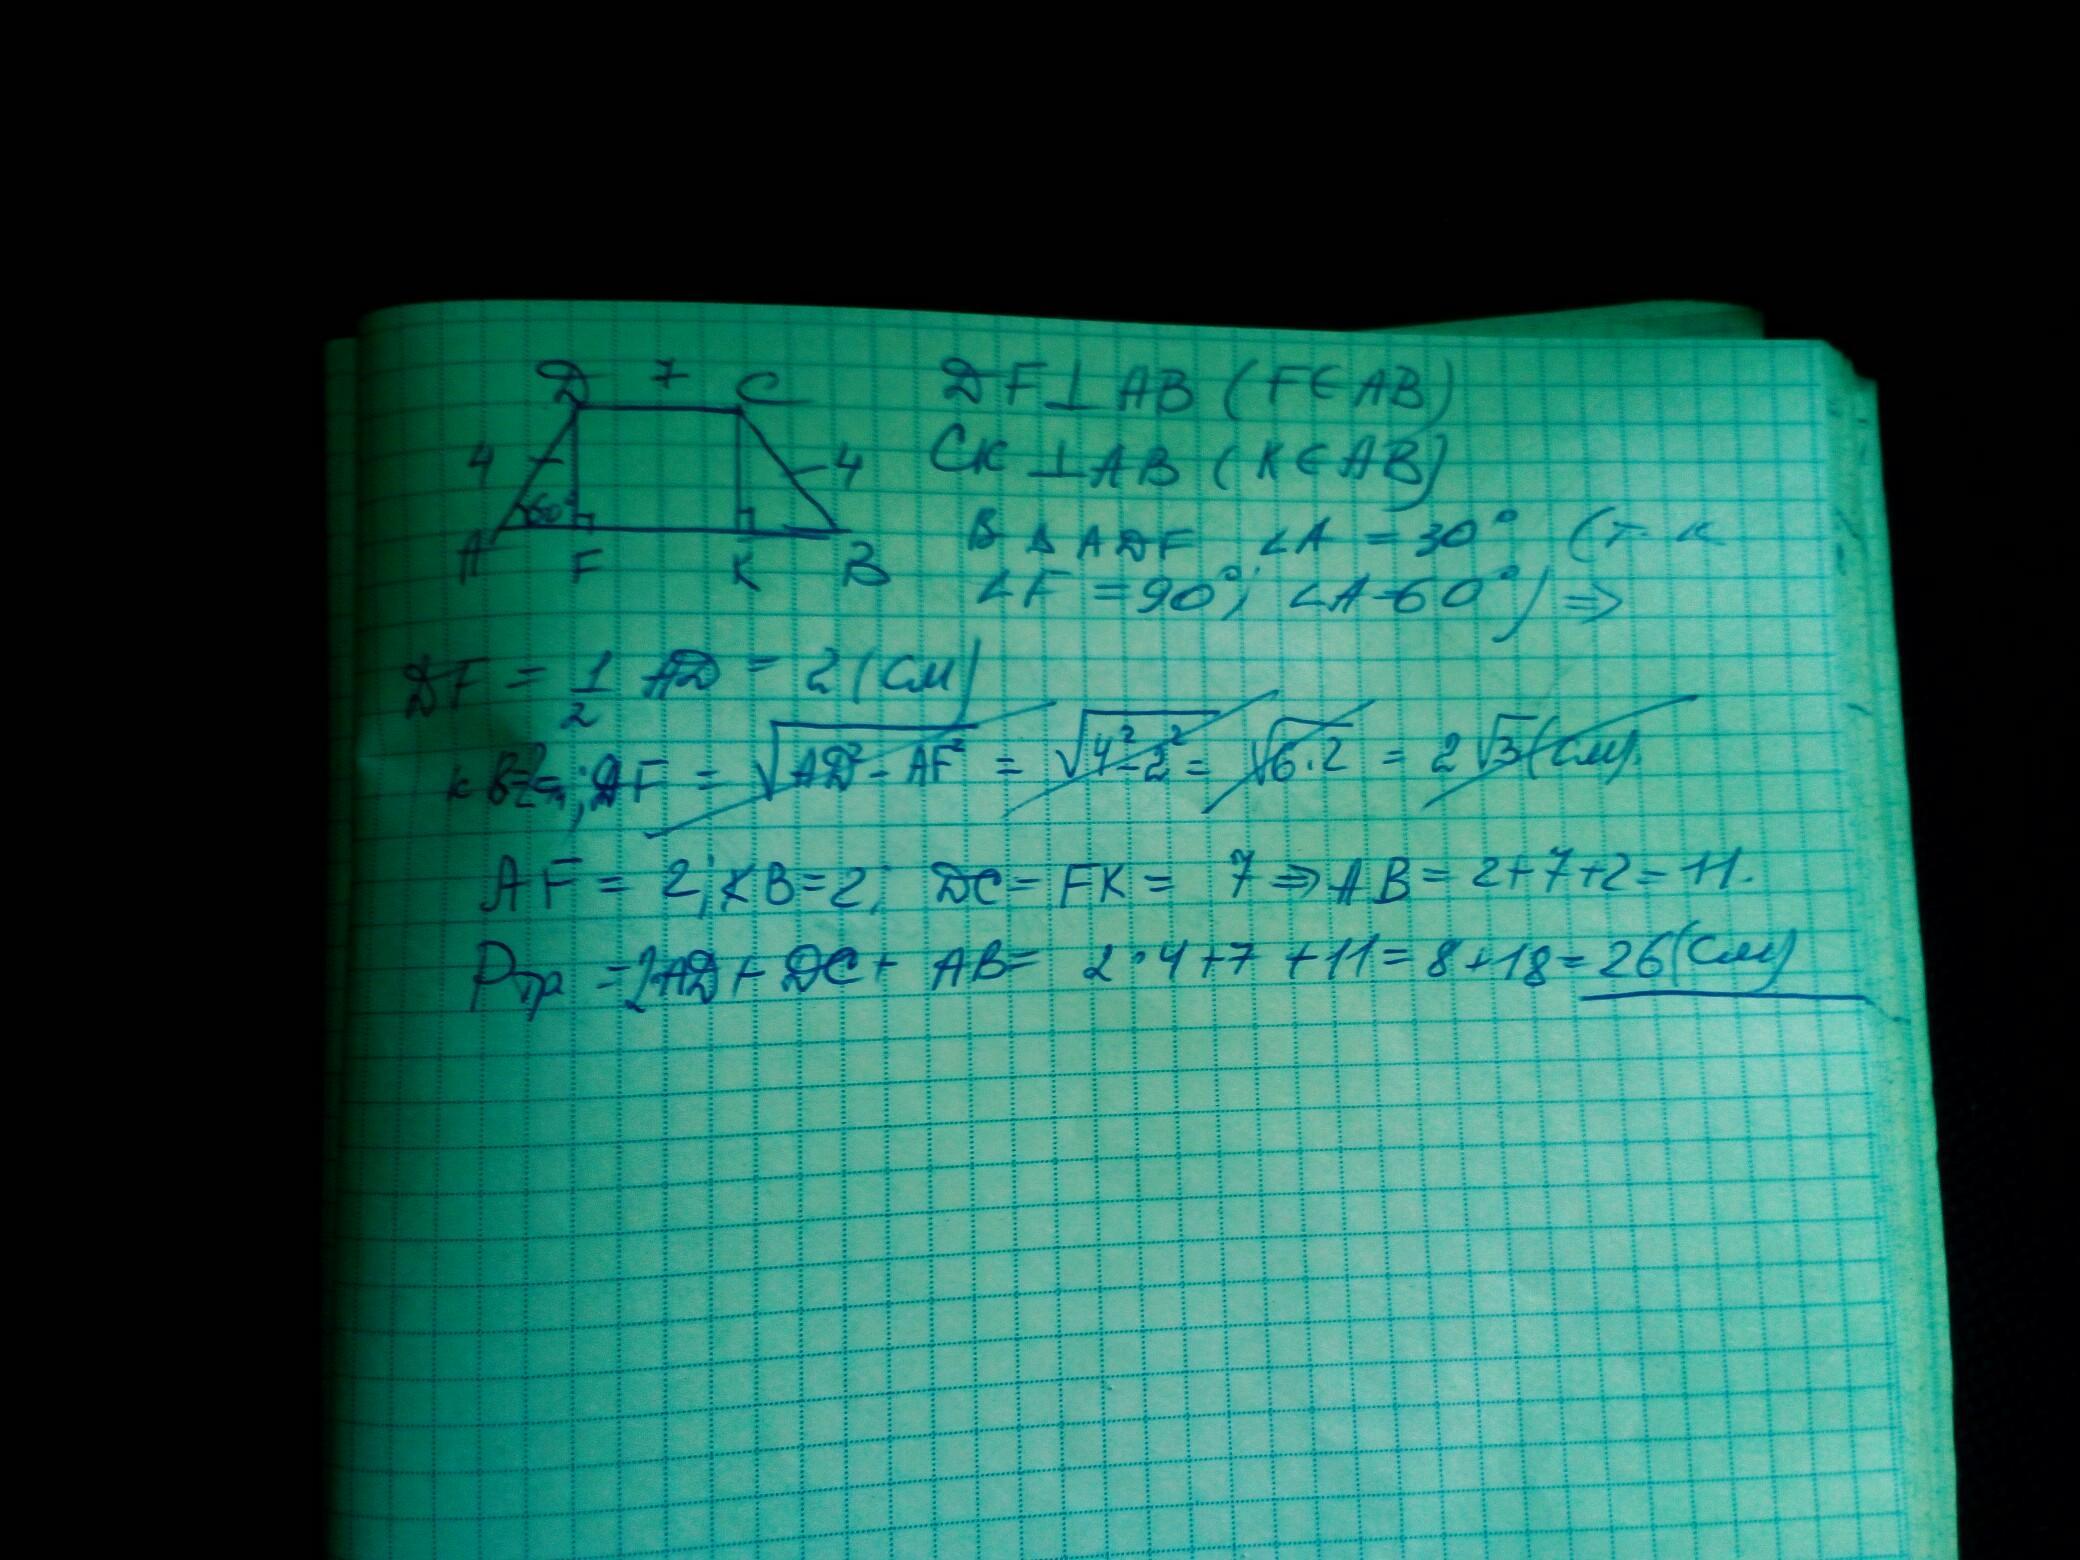 D 7 C
4 4
60°
A F K B
DF ⊥ AB (F ∈ AB)
CK ⊥ AB (K ∈ AB)
В Δ ADF ∠A = 30° (т. к
∠F = 90°; ∠A = 60°) ⇒
DF = 1/2 AD = 2 (см)
KB=2; AF = √(AD² - AF²) = √(4² - 2²) = √(6·2) = 2√3 (см).
AF = 2; KB = 2; DC = FK = 7 ⇒ AB = 2+7+2 = 11.
Pтр = 2AD + DC + AB = 2·4+7+11 = 8+18 = 26 (см)